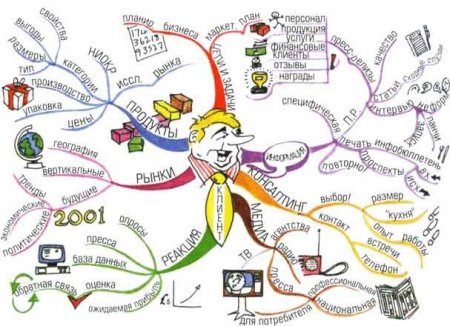 свойства
выгоды
размеры
тип
производство
упаковка
категории
НИОКР
цены
иссл.
рынка
ПРОДУКТЫ
планир
бизнеса
маркет. план
ЦЕЛИ И ЗАДАЧИ
персонал
продукция
услуги
финансовые
клиенты
отзывы
награды
пресс-релизы
качество
статьи
интервью
П.Р.
специфическая
печать
инфобюллетень
проспекты
повторно
ИНФОРМАЦИЯ
КОНСАЛТИНГ
выбор!
размер
"кухня"
контакт
опыт работы
встречи
телефон
КЛИЕНТ
МЕДИА
агентства
радио
ТВ
пресса
профессиональная
национальная
для потребителя
РЕАКЦИЯ
опросы
пресса
база данных
оценка
обратная связь
ожидаемая прибыль
£s
РЫНКИ
география
вертикальные
будущие
тренды
экономические
политические
2001